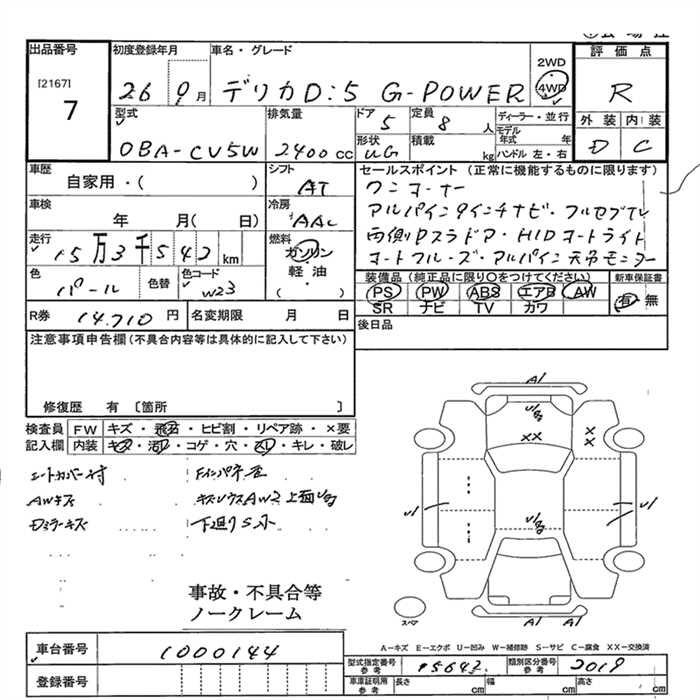 出品番号
[2167]
7
初度登録年月
26 9月
車名・グレード
デリカD:5 G-POWER
2WD
4WD
評価点
R
外装 内装
D C
型式
DBA-CV5W
排気量
2400cc
ドア
5
定員
8人
形状
積載
kg
ディーラー・並行
モデル年式 年
ハンドル 左・右
車歴
自家用・( )
シフト
AT
車検
年 月( 日)
冷房
AAC
走行
15万3千542km
燃料
ガソリン
軽油
( )
色
パール
色替
色コード
W23
R券 14,710円
名変期限 月 日
セールスポイント (正常に機能するものに限ります)
ワンオーナー
アルパイン9インチナビ・フルセグTV
両側Pスラドア・HIDオートライト
オートクルーズ・アルパイン天吊モニター
装備品 (純正品に限り○をつけてください)
PS PW ABS エアB AW
SR ナビ TV カワ
新車保証書
有・無
後日品
注意事項申告欄(不具合内容等は具体的に記入して下さい)
修復歴 有 〔箇所 〕
検査員記入欄
FW キズ・飛石・ヒビ割・リペア跡・×要
内装 キズ・汚れ・コゲ・穴・スレ・キレ・破レ
シートカバー付
AWキズ
Dミラーキズ
Fインパネ歪
下廻りS小
事故・不具合等
ノークレーム
A1
XX
X
X
U1
U1
A1 A1
スペア
A−キズ E−エクボ U−凹み W−補修跡 S−サビ C−腐食 XX−交換済
車台番号
1000144
登録番号
型式指定番号 参考
15642
類別区分番号 参考
2019
車庫証明用 参考
長さ cm
幅 cm
高さ cm